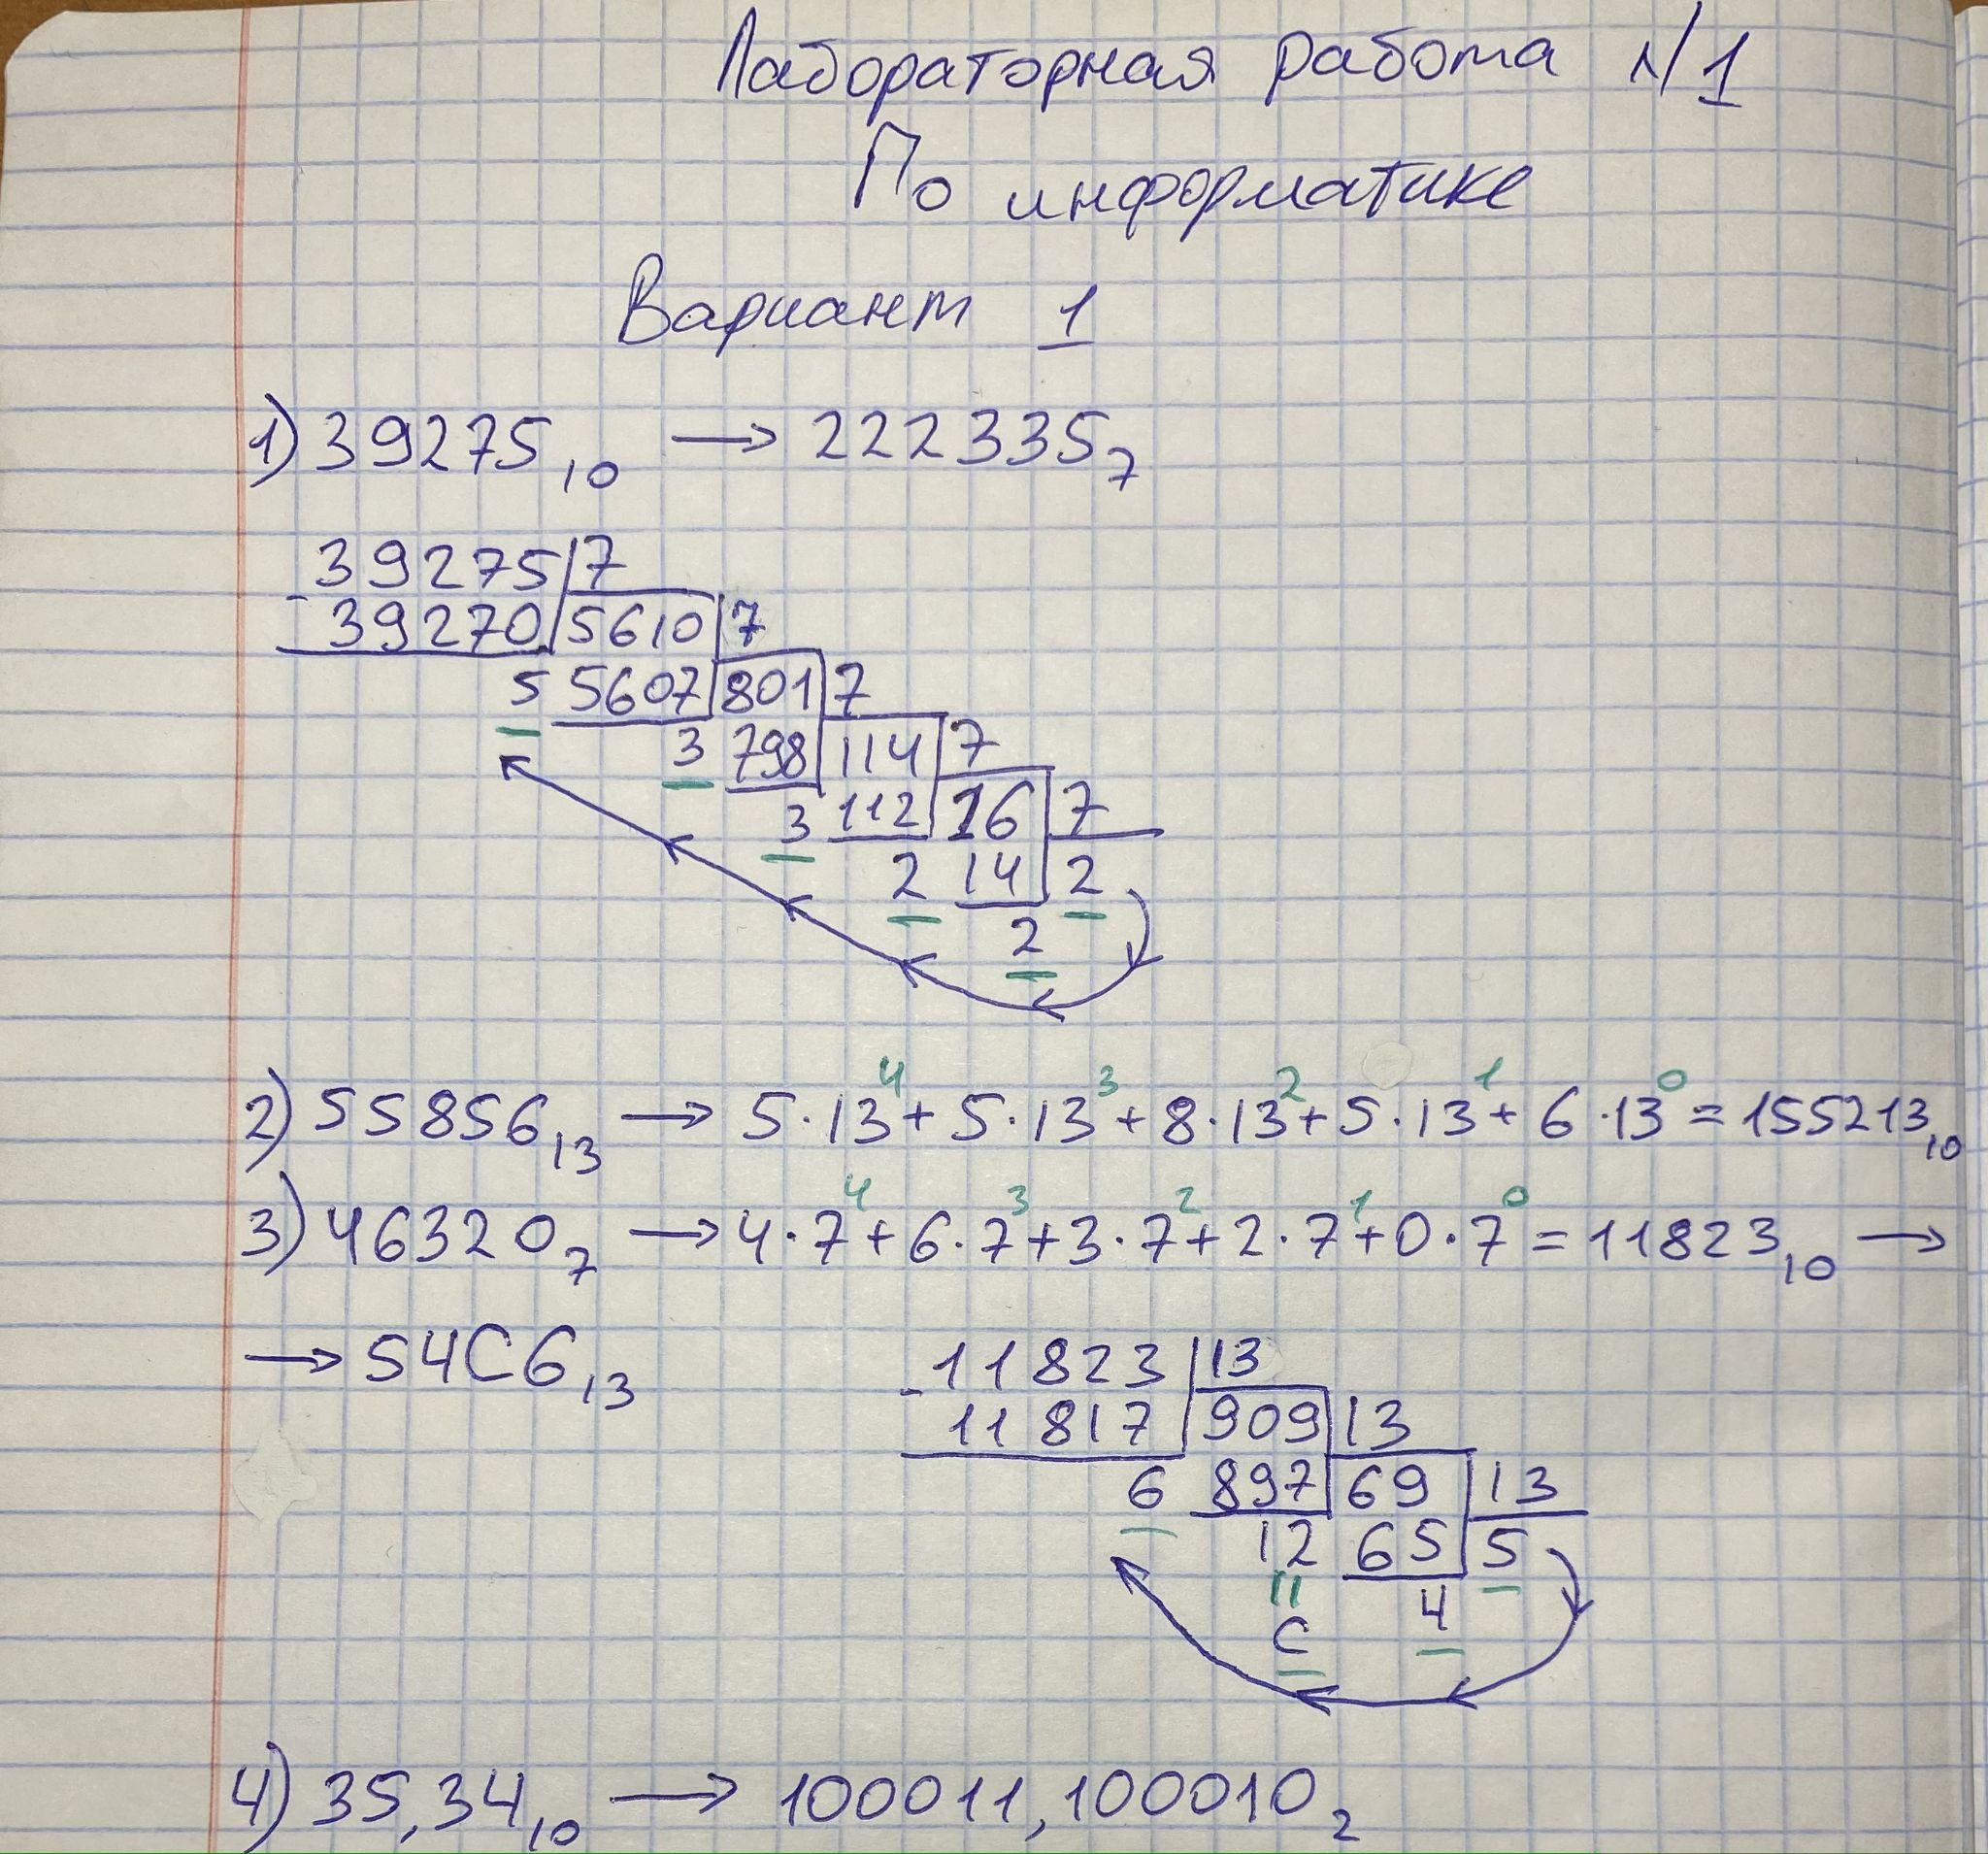 Лабораторная работа №1
По информатике
Вариант 1
1) 39275₁₀ → 222335₇
39275 | 7
- 39270 | 5610 | 7
5 5607 | 801 | 7
3 798 | 114 | 7
3 112 | 16 | 7
2 14 | 2
2
2) 55856₁₃ → 5·13⁴+5·13³+8·13²+5·13¹+6·13⁰=155213₁₀
3) 46320₇ → 4·7⁴+6·7³+3·7²+2·7¹+0·7⁰=11823₁₀ →
→ 54C6₁₃
- 11823 | 13
11817 | 909 | 13
6 897 | 69 | 13
12 65 | 5
" 4
C
4) 35,34₁₀ → 100011,100010₂